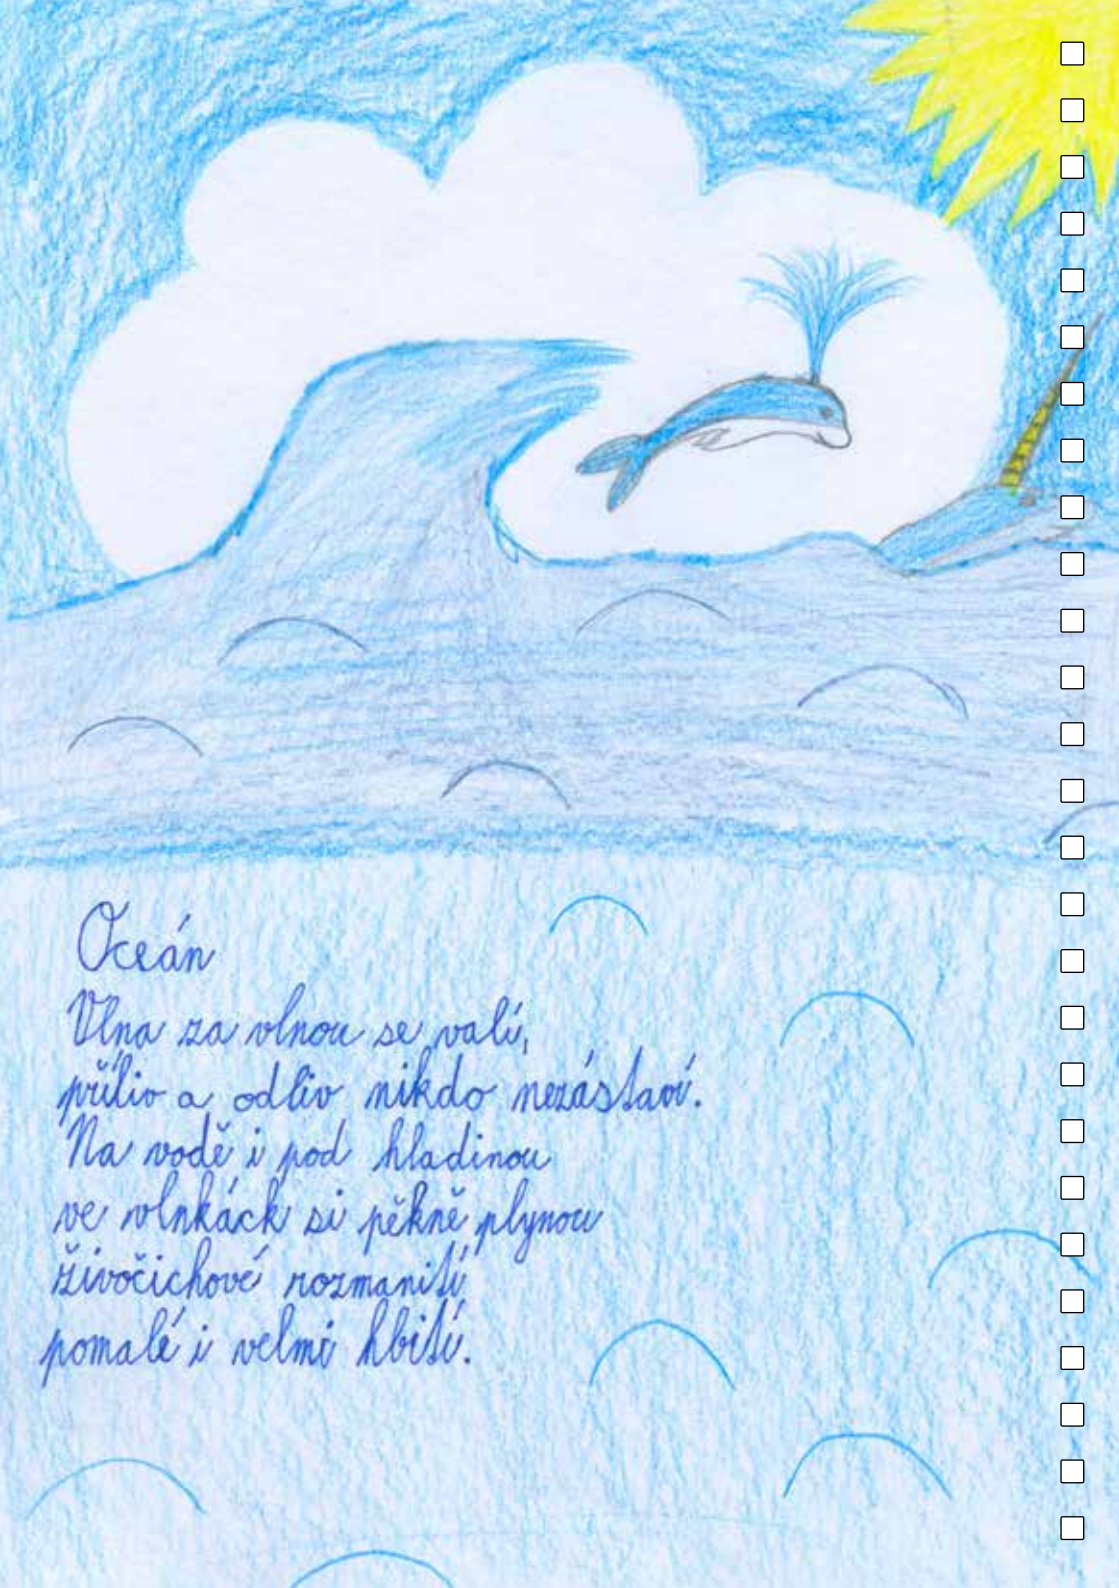 Oceán
Vlna za vlnou se valí,
příliv a odliv nikdo nezástaví.
Na vodě i pod hladinou
ve vlnkách si pěkně plynou
živočichové rozmanití
pomalé i velmi hbití.